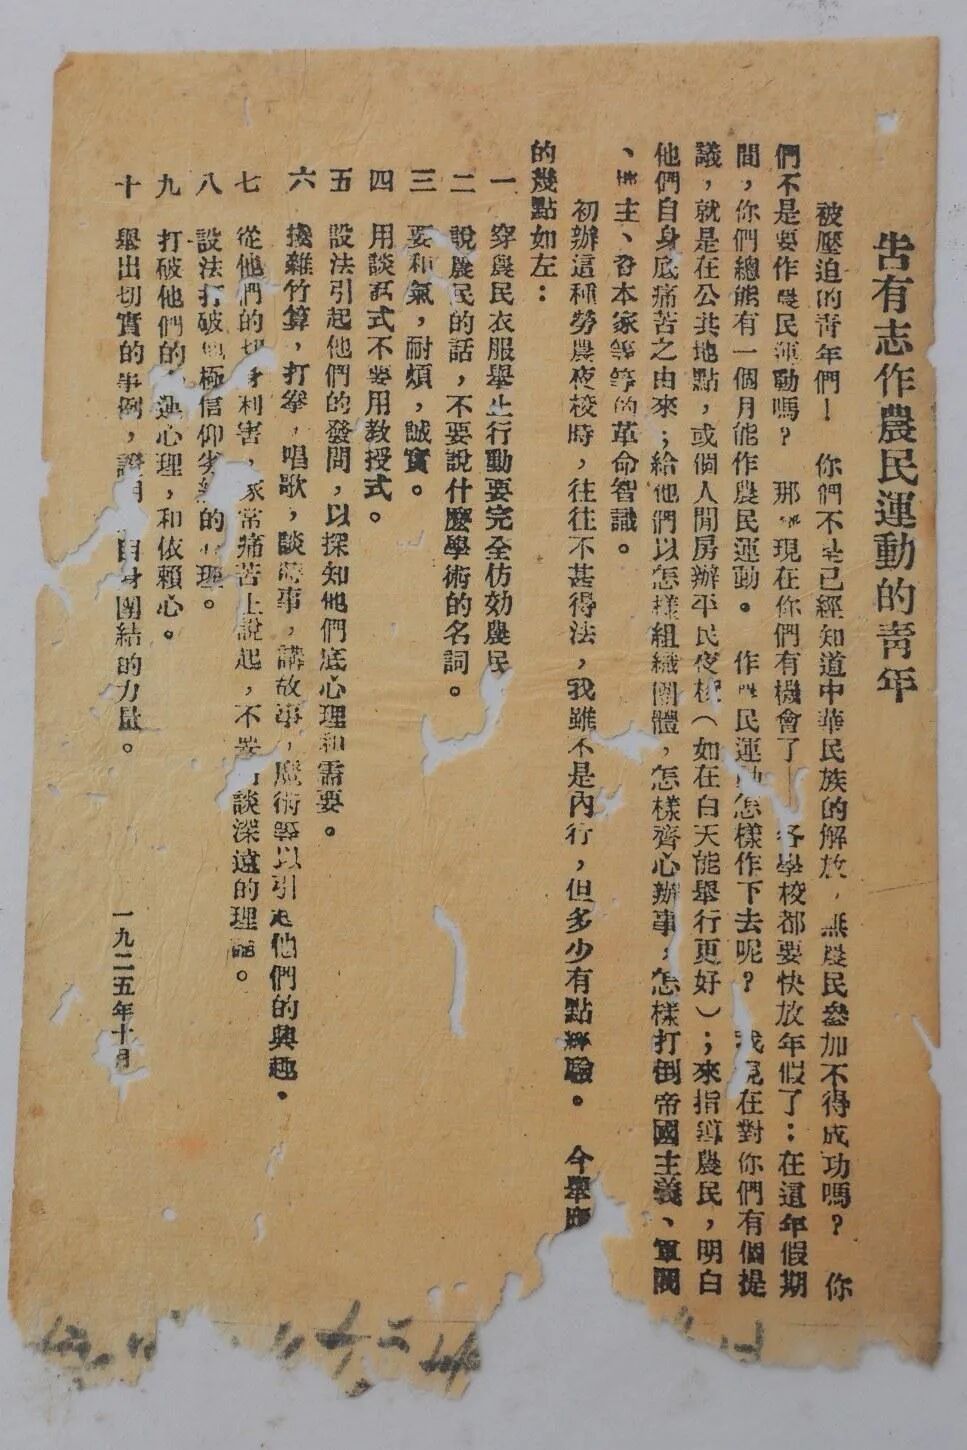 告有志作農民運動的青年
被壓迫的青年們！　你們不是已經知道中華民族的解放，無農民參加不得成功嗎？　你
們不是要作農民運動嗎？　那　現在你們有機會了——各學校都要快放年假了：在這年假期
間，你們總能有一個月能作農民運動。　作農民運動怎樣作下去呢？　我現在對你們有個提
議，就是在公共地點，或個人閒房辦平民夜校（如在白天能舉行更好）；來指導農民，明白
他們自身底痛苦之由來；給他們以怎樣組織團體，怎樣齊心辦事，怎樣打倒帝國主義、軍閥
、地主、資本家等等的革命智識。
初辦這種勞農夜校時，往往不甚得法，我雖不是內行，但多少有點經驗。　今舉應
的幾點如左：
一　穿農民衣服舉止行動要完全仿効農民
二　說農民的話，不要說什麼學術的名詞。
三　要和氣，耐煩，誠實。
四　用談話式不要用教授式。
五　設法引起他們的發問，以探知他們底心理和需要。
六　找雜竹算，打拳，唱歌，談時事，講故事，魔術等以引起他們的興趣。
七　從他們的切身利害，家常痛苦上說起，不要　談深遠的理論。
八　設法打破　極信仰劣紳的心理。
九　打破他們的　運心理，和依賴心。
十　舉出切實的事例，證明　自身團結的力量。
一九二五年十月